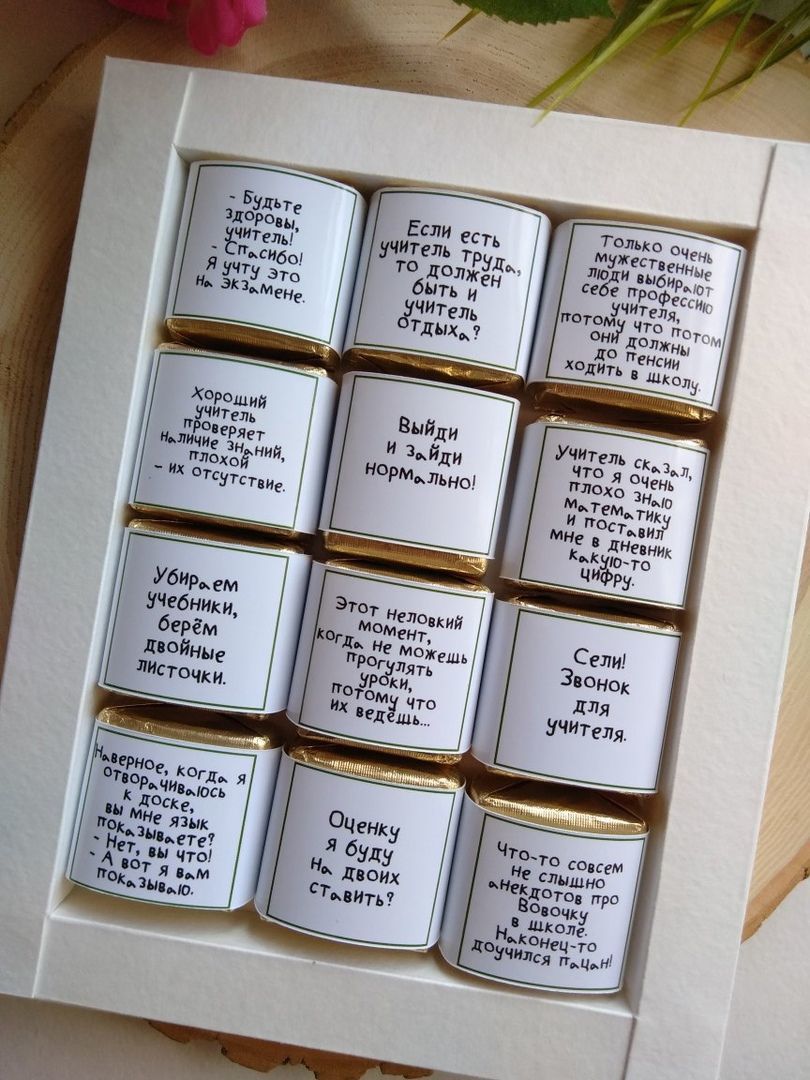 - Будьте
здоровы,
учитель!
- Спасибо!
Я учту это
на экзамене.
Если есть
учитель труда,
то должен
быть и
учитель
отдыха?
Только очень
мужественные
люди выбирают
себе профессию
учителя,
потому что потом
они должны
до пенсии
ходить в школу.
Хороший
учитель
проверяет
наличие знаний,
плохой
- их отсутствие.
Выйди
и зайди
нормально!
Учитель сказал,
что я очень
плохо знаю
математику
и поставил
мне в дневник
какую-то
цифру.
Убираем
учебники,
берём
двойные
листочки.
Этот неловкий
момент,
когда не можешь
прогулять
уроки,
потому что
их ведёшь...
Сели!
Звонок
для
учителя.
Наверное, когда я
отворачиваюсь
к доске,
вы мне язык
показываете?
- Нет, вы что!
- А вот я вам
показываю.
Оценку
я буду
на двоих
ставить?
Что-то совсем
не слышно
анекдотов про
Вовочку
в школе.
Наконец-то
доучился пацан!